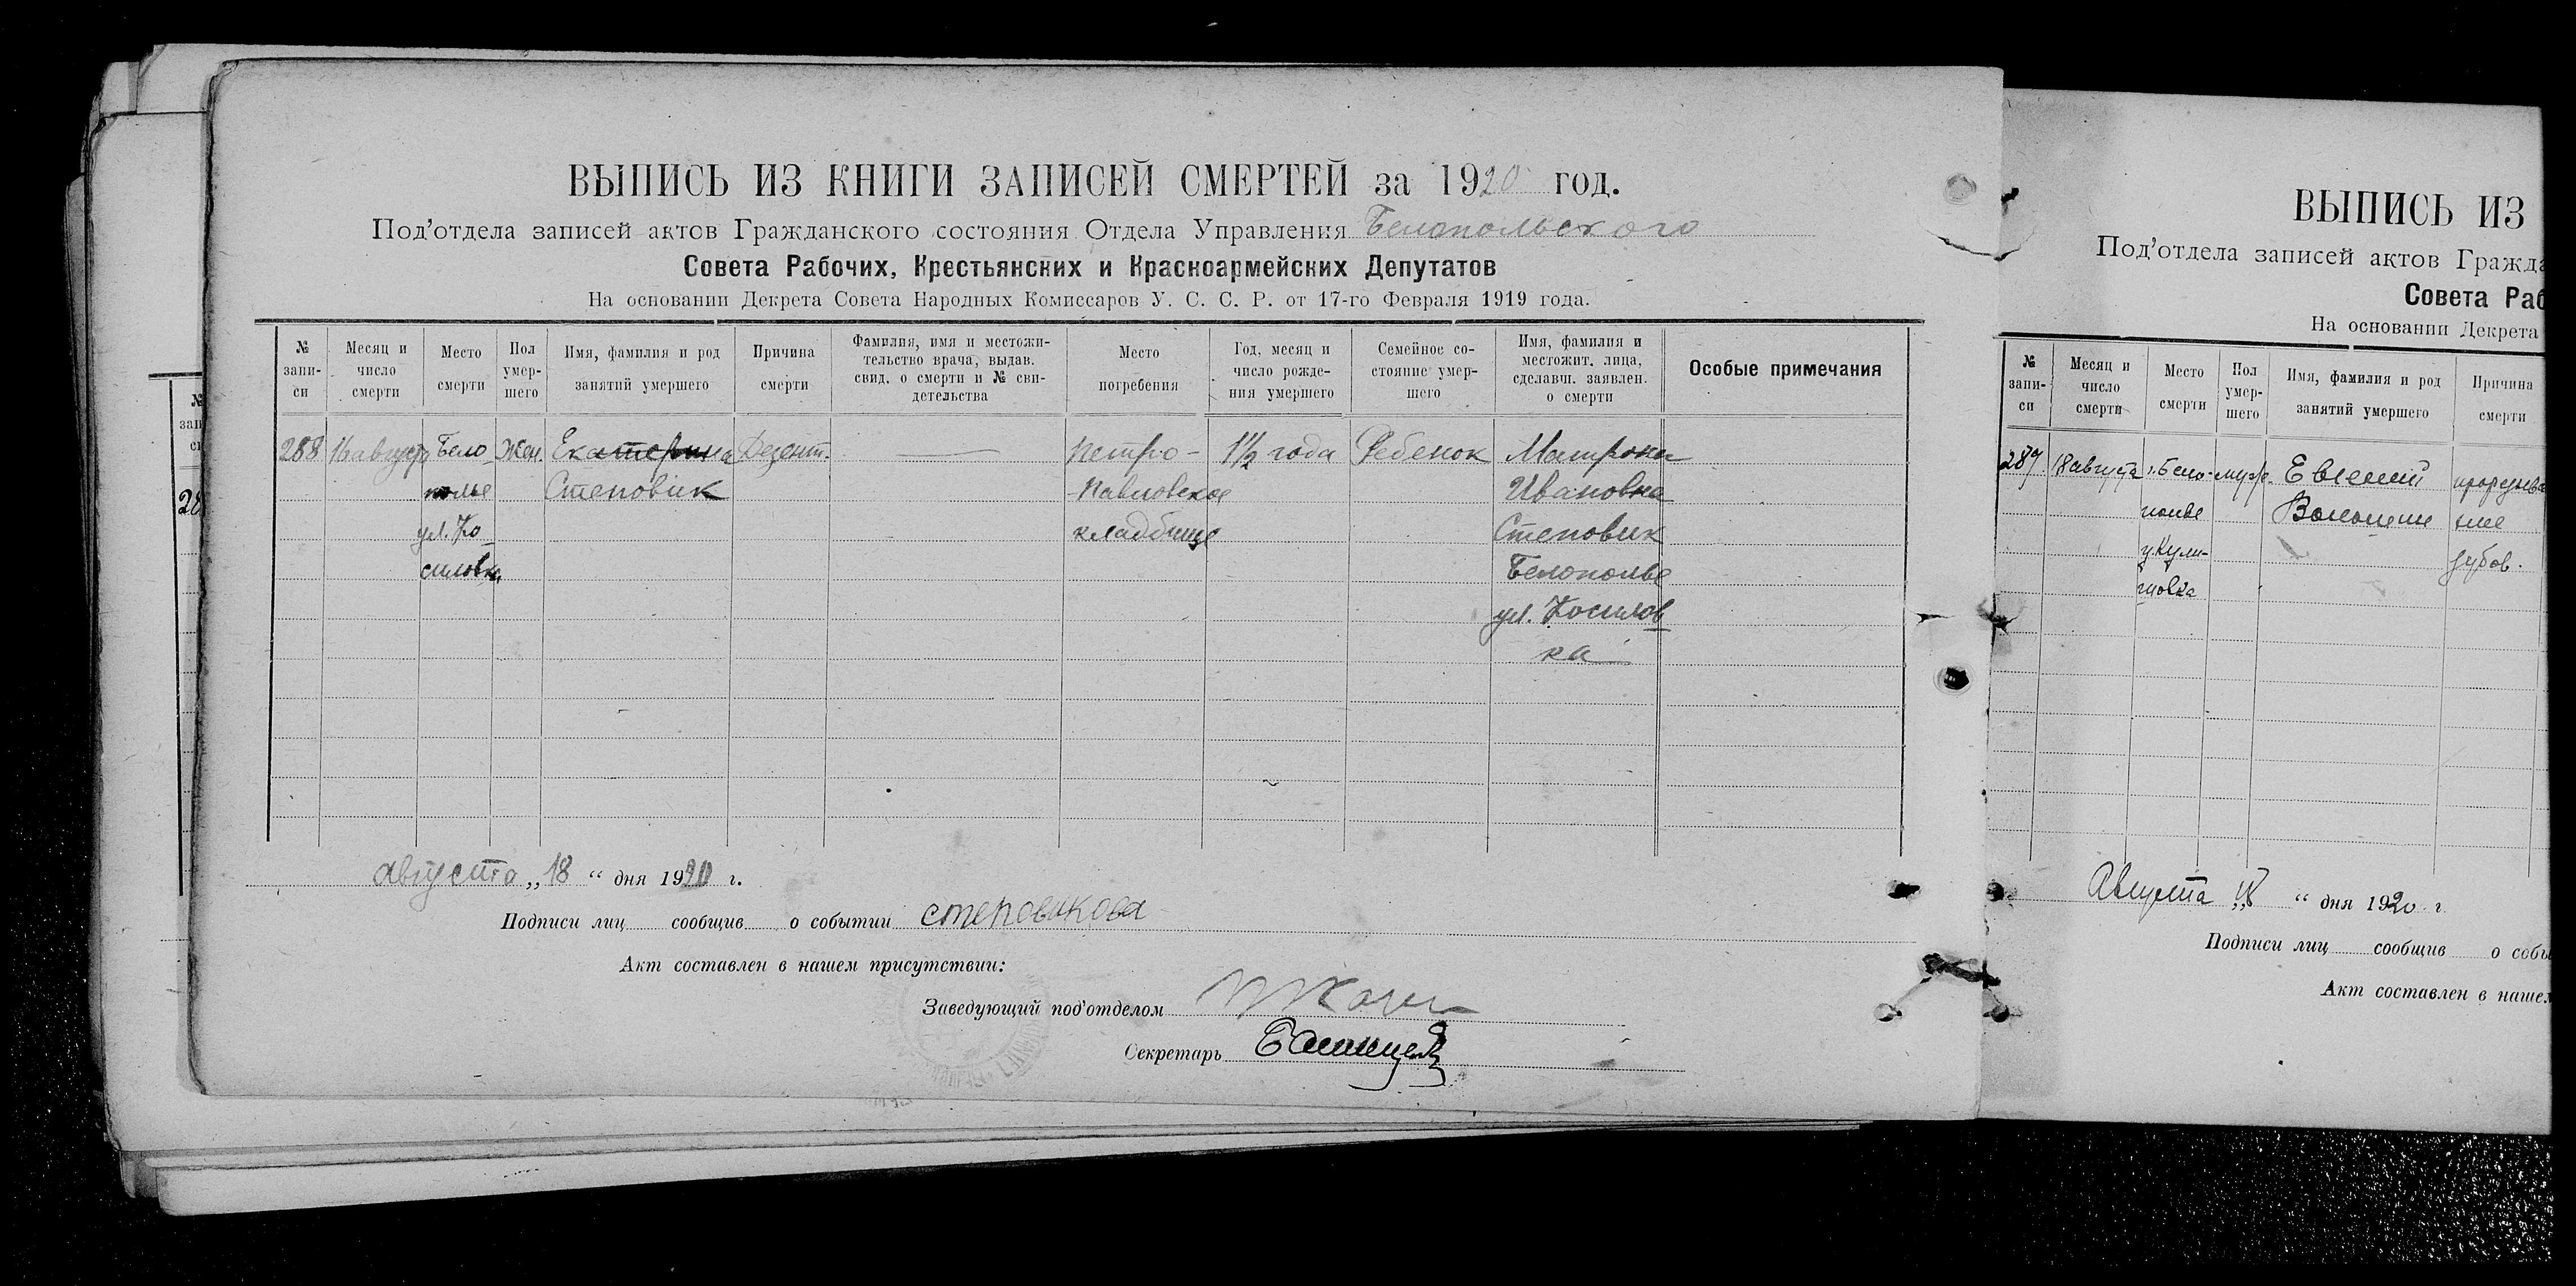 ВЫПИСЬ ИЗ КНИГИ ЗАПИСЕЙ СМЕРТЕЙ за 1920 год.
Под'отдела записей актов Гражданского состояния Отдела Управления Белопольского
Совета Рабочих, Крестьянских и Красноармейских Депутатов
На основании Декрета Совета Народных Комиссаров У. С. С. Р. от 17-го Февраля 1919 года.
№ запи-си
Месяц и число смерти
Место смерти
Пол умер-шего
Имя, фамилия и род занятий умершего
Причина смерти
Фамилия, имя и местожи-тельство врача, выдав. свид. о смерти и № сви-детельства
Место погребения
Год, месяц и число рожде-ния умершего
Семейное со-стояние умер-шего
Имя, фамилия и местожит. лица, сделавш. заявлен. о смерти
Особые примечания
288 16 августа Бело- Жен. Екатерина Дезент. Петро- 1½ года Ребенок Матрона
полье Степовик Павловское Ивановна
ул. Ко- кладбище Степовик
силовка Белополье
ул. Косилов
ка
августа „18“ дня 1920 г.
Подписи лиц сообщив о событии степовикова
Акт составлен в нашем присутствии:
Заведующий под'отделом
Секретарь
ВЫПИСЬ ИЗ
Под'отдела записей актов Гражда
Совета Раб
На основании Декрета
№ запи-си
Месяц и число смерти
Место смерти
Пол умер-шего
Имя, фамилия и род занятий умершего
Причина смерти
289 18 августа г. Бело- муж. Евгений прорезыва
полье ние
зубов.
Августа „18“ дня 1920 г.
Подписи лиц сообщив о собы
Акт составлен в нашем